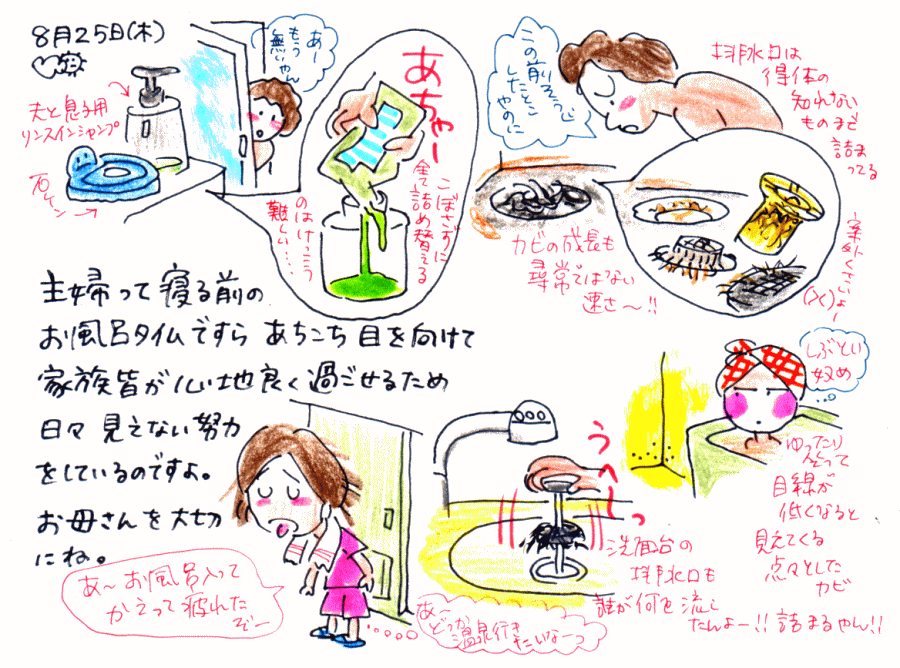 8月25日(木)
あー
もう
無いやん
夫と息子用
リンスインシャンプ
石ケン
あちゃー
こぼさずに
全て詰め替える
のはけっこう
難しい…
この前
そうじ
したとこ
やのに
排水口は
得体の
知れない
ものまで
詰まってる
カビの成長も
尋常ではない
速さ〜!!
案外くさいよー
(><)
主婦って寝る前の
お風呂タイムですら あちこち目を向けて
家族皆が心地良く過ごせるため
日々見えない努力
をしているのですよ。
お母さんを大切
にね。
しぶとい
奴め
ゆったり
目線が
低くなると
見えてくる
点々とした
カビ
うへーっ
洗面台の
排水口も
誰が何を流し
たんよー!! 詰まるやん!!
あ〜お風呂入って
かえって疲れた
ぞー
あ〜
どっか
温泉行き
たいなーっ